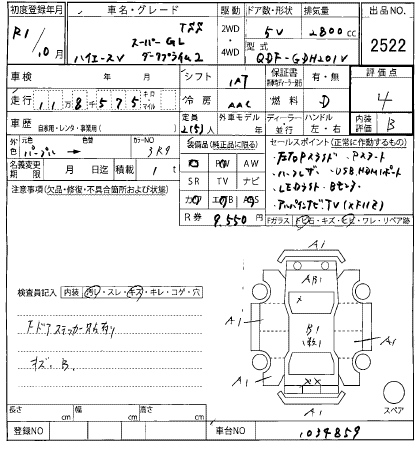 初度登録年月
車名・グレード
駆動
ドア数・形状
排気量
出品NO.
R1
10月
TSS
スーパーGL
ハイエースV
ダークプライム2
2WD
・
4WD
5V
2800cc
型式
QDF-GDH201V
2522
車検
年 月
シフト
1AT
保証書
有・無
評価点
4
走行
11万8千575
キロ
マイル
冷房
AAC
燃料
D
車歴
自家用・レンタ・事業用( )
定員
2(5)人
外車モデル
年
ディーラー
並行
ハンドル
左・右
内装
評価
B
外色
元色
パープル
色替
カラーNO
3R9
名義変更
期限
月 日迄
積載
1t
装備品(純正品に限る)
PS PW AW
SR TV ナビ
カワ エアB ABS
R券
9.550円
セールスポイント(正常に作動するもの)
・ハーフレザー
・USB.HDMIポート
・LEDライト
Fガラス
石・キズ・ヒビ・ワレ・リペア跡
注意事項(欠品・修復・不具合箇所および状態)
検査員記入
内装
汚レ・スレ・キズ・キレ・コゲ・穴
ドアステッカー
キズ、B.
A1
AB1
A1
A1
B1
A1
A1
××
A1
スペア
長さ
cm
幅
cm
高さ
cm
登録NO
車台NO
1034859